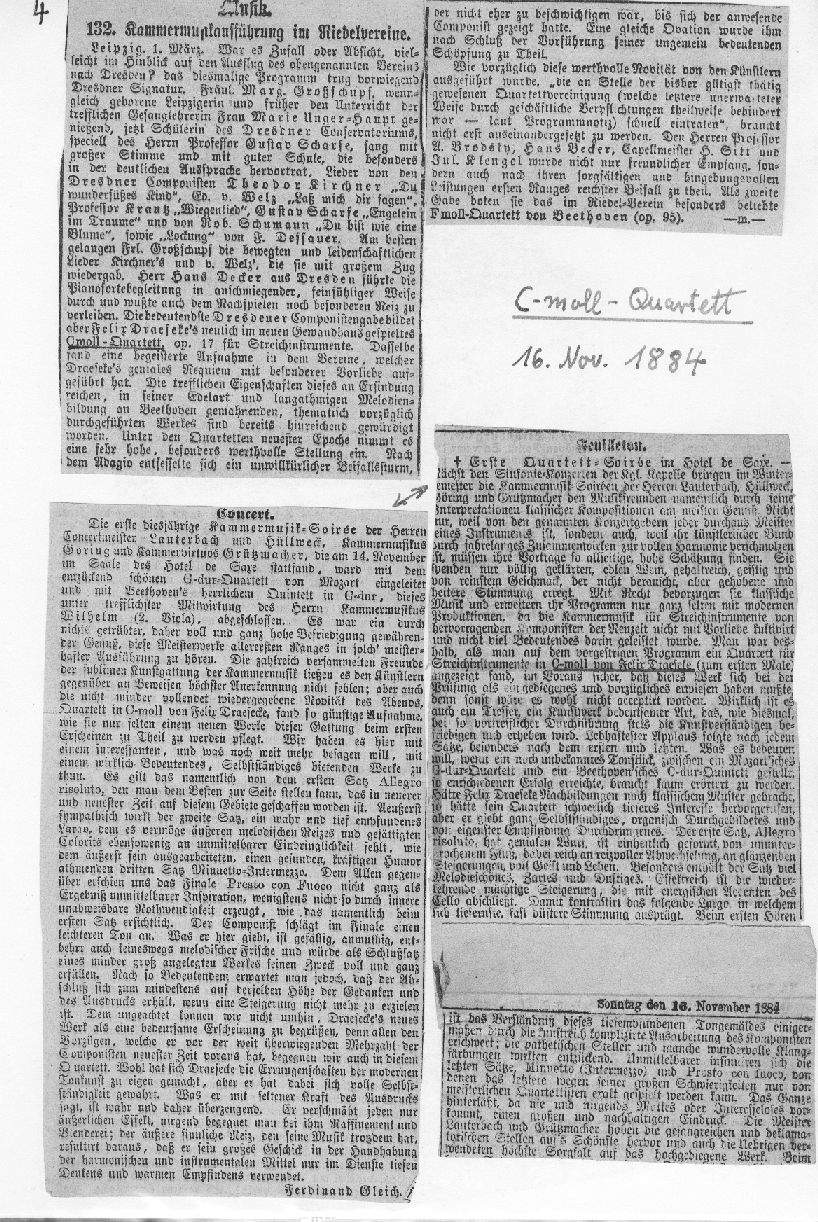 4
Musik.
132. Kammermusikaufführung im Riedelvereine.
Leipzig, 1. März. War es Zufall oder Absicht, viel-
leicht im Hinblick auf den Ausflug des obengenannten Vereins
nach Dresden? das diesmalige Programm trug vorwiegend
Dresdner Signatur. Fräul. Marg. Großschupf, wenn-
gleich geborene Leipzigerin und früher den Unterricht der
trefflichen Gesanglehrerin Frau Marie Unger-Haupt ge-
nießend, jetzt Schülerin des Dresdner Conservatoriums,
speciell des Herrn Professor Gustav Scharfe, sang mit
großer Stimme und mit guter Schule, die besonders
in der deutlichen Aussprache hervortrat, Lieder von den
Dresdner Componisten Theodor Kirchner „Du
wundersüßes Kind“, Ed. v. Welz „Laß mich dir sagen“,
Professor Krantz „Wiegenlied“, Gustav Scharfe „Engelein
im Traume“ und von Rob. Schumann „Du bist wie eine
Blume“, sowie „Lockung“ von F. Dessauer. Am besten
gelangen Frl. Großschupf die bewegten und leidenschaftlichen
Lieder Kirchner's und v. Welz', die sie mit großem Zug
wiedergab. Herr Hans Decker aus Dresden führte die
Pianofortebegleitung in anschmiegender, feinfühliger Weise
durch und wußte auch dem Nachspielen noch besonderen Reiz zu
verleihen. Die bedeutendste Dresdener Componistengabe bildet
aber Felix Draeseke's neulich im neuen Gewandhaus gespieltes
Cmoll-Quartett, op. 17 für Streichinstrumente. Dasselbe
fand eine begeisterte Aufnahme in dem Vereine, welcher
Draeseke's geniales Requiem mit besonderer Vorliebe auf-
geführt hat. Die trefflichen Eigenschaften dieses an Erfindung
reichen, in seiner Edelart und langathmigen Melodien-
bildung an Beethoven gemahnenden, thematisch vorzüglich
durchgeführten Werkes sind bereits hinreichend gewürdigt
worden. Unter den Quartetten neuester Epoche nimmt es
eine sehr hohe, besonders werthvolle Stellung ein. Nach
dem Adagio entfesselte sich ein unwillkürlicher Beifallssturm,
der nicht eher zu beschwichtigen war, bis sich der anwesende
Componist gezeigt hatte. Eine gleiche Ovation wurde ihm
nach Schluß der Vorführung seiner ungemein bedeutenden
Schöpfung zu Theil.
Wie vorzüglich diese werthvolle Novität von den Künstlern
ausgeführt wurde, „die an Stelle der bisher gütigst thätig
gewesenen Quartettvereinigung (welche letztere unerwarteter
Weise durch geschäftliche Verpflichtungen theilweise behindert
war — laut Programmnotiz) schnell eintraten“, braucht
nicht erst auseinandergesetzt zu werden. Den Herren Professor
A. Brodsky, Hans Becker, Capellmeister H. Sitt und
Jul. Klengel wurde nicht nur freundlicher Empfang, son-
dern auch nach ihren sorgfältigen und hingebungsvollen
Leistungen ersten Ranges reichster Beifall zu theil. Als zweite
Gabe boten sie das im Riedel-Verein besonders beliebte
Fmoll-Quartett von Beethoven (op. 95). —m.—
C-moll-Quartett
16. Nov. 1884
Concert.
Die erste diesjährige Kammermusik-Soirée der Herren
Concertmeister Lauterbach und Hüllweck, Kammermusikus
Göring und Kammervirtuos Grützmacher, die am 14. November
im Saale des Hotel de Saxe stattfand, ward mit dem
entzückend schönen G-dur-Quartett von Mozart eingeleitet
und mit Beethoven's herrlichem Quintett in C-dur, dieses
unter trefflichster Mitwirkung des Herrn Kammermusikus
Wilhelm (2. Viola), abgeschlossen. Es war ein durch
nichts getrübter, daher voll und ganz hohe Befriedigung gewähren-
der Genuß, diese Meisterwerke allerersten Ranges in solch' meister-
hafter Ausführung zu hören. Die zahlreich versammelten Freunde
der sublimen Kunstgattung der Kammermusik ließen es den Künstlern
gegenüber an Beweisen höchster Anerkennung nicht fehlen; aber auch
die nicht minder vollendet wiedergegebene Novität des Abends,
Quartett in C-moll von Felix Draeseke, fand so günstige Aufnahme,
wie sie nur selten einem neuen Werke dieser Gattung beim ersten
Erscheinen zu Theil zu werden pflegt. Wir haben es hier mit
einem interessanten, und was noch weit mehr besagen will, mit
einem wirklich Bedeutendes, Selbstständiges bietenden Werke zu
thun. Es gilt das namentlich von dem ersten Satz Allegro
risoluto, den man dem Besten zur Seite stellen kann, das in neuerer
und neuester Zeit auf diesem Gebiete geschaffen worden ist. Aeußerst
sympathisch wirkt der zweite Satz, ein wahr und tief empfundenes
Largo, dem es vermöge äußeren melodischen Reizes und gesättigten
Colorits ebensowenig an unmittelbarer Eindringlichkeit fehlt, wie
dem äußerst fein ausgearbeiteten, einen gesunden, kräftigen Humor
athmenden dritten Satz Minuetto-Intermezzo. Dem Allen gegen-
über erschien uns das Finale Presto con Fuoco nicht ganz als
Ergebniß unmittelbarer Inspiration, wenigstens nicht so durch innere
unabweisbare Nothwendigkeit erzeugt, wie das namentlich beim
ersten Satz ersichtlich. Der Componist schlägt im Finale einen
leichteren Ton an. Was er hier giebt, ist gefällig, anmuthig, ent-
behrt auch keineswegs melodischer Frische und würde als Schlußsatz
eines minder groß angelegten Werkes seinen Zweck voll und ganz
erfüllen. Nach so Bedeutendem erwartet man jedoch, daß der Ab-
schluß sich zum mindesten auf derselben Höhe der Gedanken und
des Ausdrucks erhält, wenn eine Steigerung nicht mehr zu erzielen
ist. Dem ungeachtet können wir nicht umhin, Draeseke's neues
Werk als eine bedeutsame Erscheinung zu begrüßen, denn allen den
Vorzügen, welche er vor der weit überwiegenden Mehrzahl der
Componisten neuester Zeit voraus hat, begegnen wir auch in diesem
Quartett. Wohl hat sich Draeseke die Errungenschaften der modernen
Tonkunst zu eigen gemacht, aber er hat dabei sich volle Selbst-
ständigkeit gewahrt. Was er mit seltener Kraft des Ausdrucks
sagt, ist wahr und daher überzeugend. Er verschmäht jeden nur
äußerlichen Effekt, nirgend begegnet man bei ihm Raffinement und
Blenderei; der äußere sinnliche Reiz, den seine Musik trotzdem hat,
resultirt daraus, daß er sein großes Geschick in der Handhabung
der harmonischen und instrumentalen Mittel nur im Dienste tiefen
Denkens und warmen Empfindens verwendet.
Ferdinand Gleich.
Feuilleton.
† Erste Quartett-Soirée im Hotel de Saxe. —
nächst den Sinfonie-Konzerten der Kgl. Kapelle bringen im Winter-
semester die Kammermusik-Soiréen der Herren Lauterbach, Hüllweck,
Göring und Grützmacher den Musikfreunden namentlich durch seine
Interpretationen klassischer Kompositionen am meisten Genuß. Nicht
nur, weil von den genannten Konzertgebern jeder durchaus Meister
eines Instruments ist, sondern auch, weil ihr künstlerischer Bund
durch jahrelanges Zusammenwirken zur vollen Harmonie verschmolzen
ist, müssen ihre Vorträge so allseitige, hohe Schätzung finden. Sie
spenden nur völlig geklärten, edlen Wein, gehaltreich, geistig und
von reinstem Geschmack, der nicht berauscht, aber gehobene und
heitere Stimmung erregt. Mit Recht bevorzugen sie klassische
Musik und erweitern ihr Programm nur ganz selten mit modernen
Produktionen, da die Kammermusik für Streichinstrumente von
hervorragenden Komponisten der Neuzeit nicht mit Vorliebe kultivirt
und nicht viel Bedeutendes darin geleistet wurde. Man war des-
halb, als man auf dem vorgestrigen Programm ein Quartett für
Streichinstrumente in C-moll von Felix Draeseke (zum ersten Male)
angezeigt fand, im Voraus sicher, daß dieses Werk sich bei der
Prüfung als ein gediegenes und vorzügliches erwiesen haben mußte,
denn sonst wäre es wohl nicht acceptirt worden. Wirklich ist es
auch ein Treffer, ein Kunstwerk bedeutsamer Art, das, wie diesmal,
bei so vortrefflicher Durchführung stets die Kunstverständigen be-
friedigen und erheben wird. Lebhaftester Applaus folgte nach jedem
Satze, besonders nach dem ersten und letzten. Was es bedeuten
will, wenn ein noch unbekanntes Tonstück, zwischen ein Mozart'sches
G-dur-Quartett und ein Beethoven'sches C-dur-Quintett gestellt,
so entschiedenen Erfolg erreicht, braucht kaum erörtert zu werden.
Hätte Felix Draeseke Nachbildungen nach klassischem Muster gebracht,
so hätte sein Quartett schwerlich tieferes Interesse hervorgerufen,
aber er giebt ganz Selbstständiges, organisch Durchgebildetes und
von eigenster Empfindung Durchdrungenes. Der erste Satz, Allegro
risoluto, hat genialen Wurf, ist einheitlich geformt, von ununter-
brochenem Fluß, dabei reich an reizvoller Abwechselung, an glänzenden
Steigerungen voll Geist und Leben. Besonders enthält der Satz viel
Melodieschönes, Zartes und Duftiges. Effektreich ist die wieder-
kehrende mächtige Steigerung, die mit energischen Accenten des
Cello abschließt. Damit kontrastirt das folgende Largo, in welchem
sich tiefernste, fast düstere Stimmung ausprägt. Beim ersten Hören
Sonntag den 16. November 1884
ist das Verständniß dieses tiefempfundenen Tongemäldes einiger-
maßen durch die kunstreich komplizirte Ausarbeitung des Komponisten
erschwert; die pathetischen Stellen und manche wundervolle Klang-
färbungen wirken entzückend. Unmittelbarer insinuiren sich die
letzten Sätze, Minuetto (Intermezzo) und Presto con fuoco, von
denen das letztere wegen seiner großen Schwierigkeiten nur von
meisterlichen Quartettisten exakt gespielt werden kann. Das Ganze
hinterläßt, da nie und nirgends Mattes oder Interesseloses vor-
kommt, einen großen und nachhaltigen Eindruck. Die Meister
Lauterbach und Grützmacher hoben die gesangreichen und deklama-
torischen Stellen auf's Schönste hervor und auch die Uebrigen ver-
wendeten höchste Sorgfalt auf das hochgediegene Werk. Beim